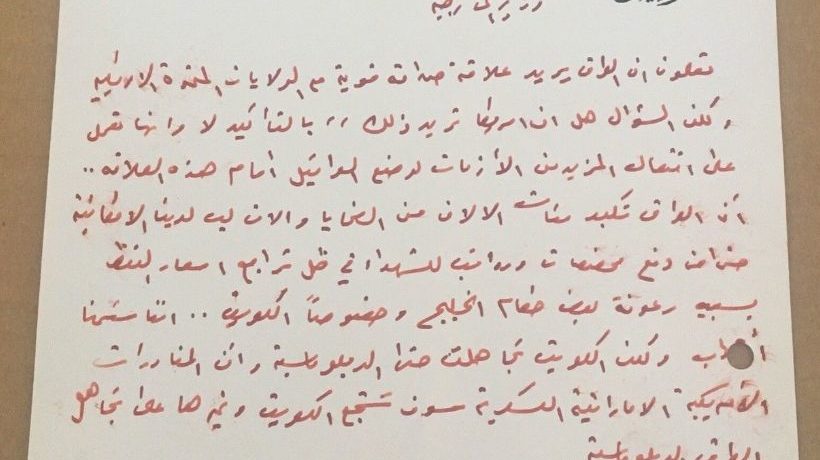 وزير الخارجية
تقولون ان العراق يريد علاقة صداقة قوية مع الولايات المتحدة الامريكية
ولكن السؤال هل ان امريكا تريد ذلك ،، بالتأكيد لا وانها تعمل
على افتعال المزيد من الأزمات لوضع العراقيل امام هذه العلاقة ..
أن العراق تكبد مئات الالاف من الضحايا والان ليس لدينا الامكانية
حتى من دفع مخصصات ورواتب للشهداء في ظل تراجع اسعار النفط
بسبب رعونة بعض حكام الخليج وخصوصاً الكويت .. اننا
ولكن الكويت تجاهلت حتى الدبلوماسية وأن المناورات
الأمريكية الاماراتية العسكرية سوف تشجع الكويت وغيرها على تجاهل
الدبلوماسية